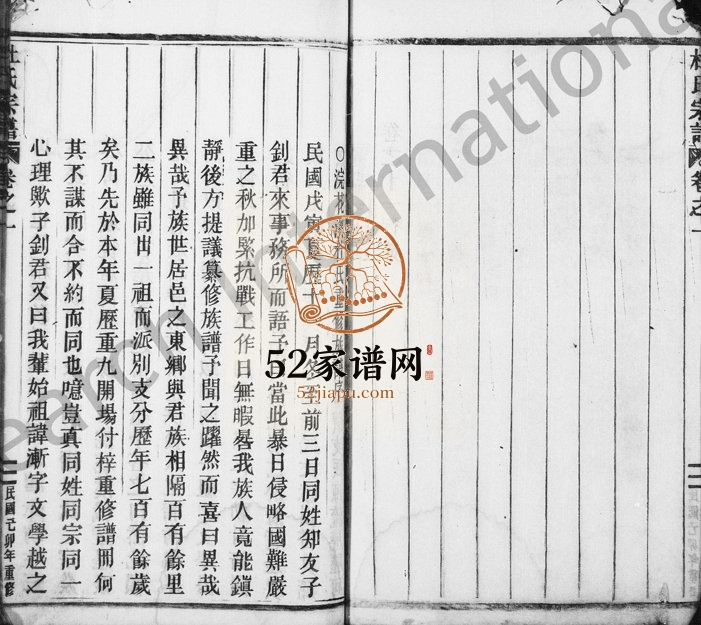 杜氏宗譜 卷之一
○浣
民國戊寅夏歷十月冬至前三日同姓知友子
釗君來事務所而語予曰當此暴日侵略國難嚴
重之秋加緊抗戰工作日無暇晷我族人竟能鎮
靜後方提議纂修族譜予聞之躍然而喜曰異哉
異哉予族世居邑之東鄉與君族相隔百有餘里
二族雖同出一祖而派別支分歷年七百有餘歲
矣乃先於本年夏歷重九開場付梓重修譜冊何
其不謀而合不約而同也噫豈真同姓同宗同一
心理歟子釗君又曰我輩始祖諱漸字文學越之
杜氏宗譜 卷之一
民國己卯年重修
52家谱网
52jiapu.com
earch International